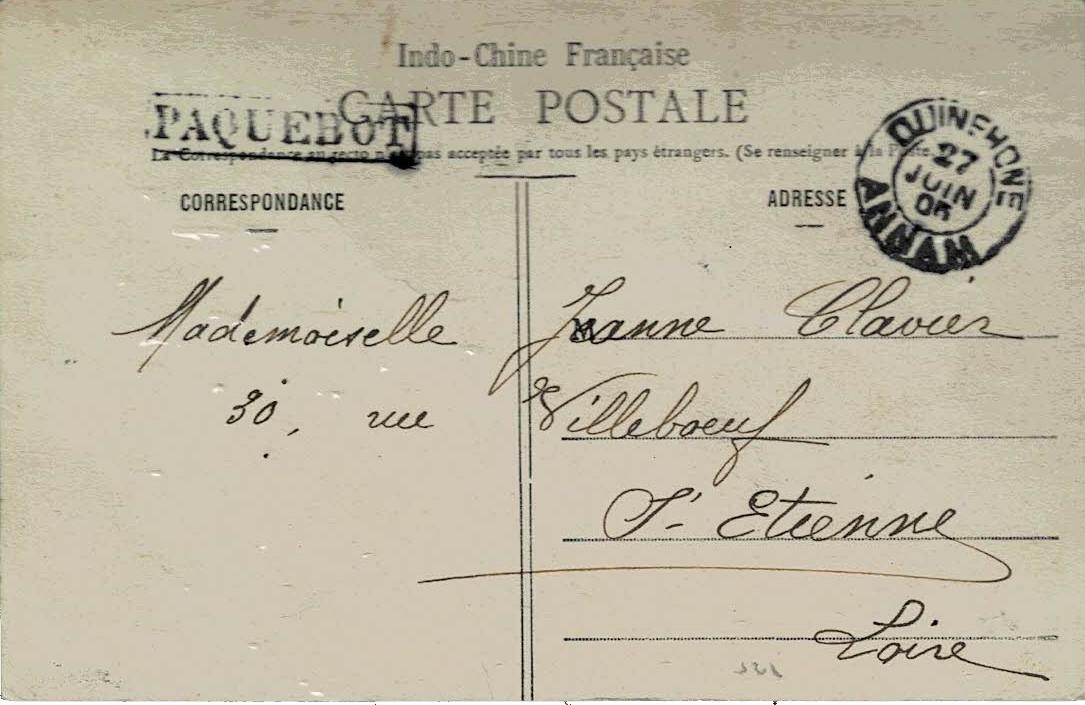 Indo-Chine Française
CARTE POSTALE
PAQUEBOT
La Correspondance au recto n'est pas acceptée par tous les pays étrangers. (Se renseigner à la Poste.)
CORRESPONDANCE
ADRESSE
QUINHONE
27
JUIN
ANNAM
Mademoiselle Jeanne Clavier
30, rue Villeboeuf
St Etienne
Loire